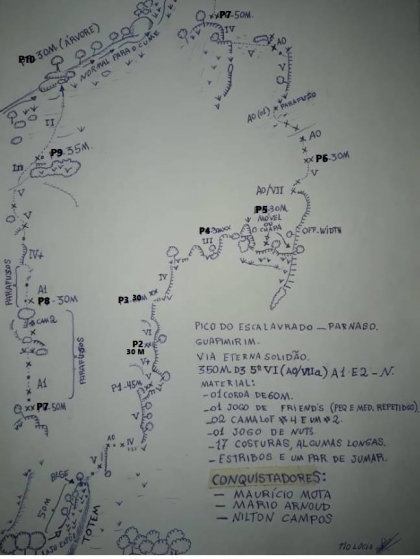 P7-50M.
IV
P10 30M (ÁRVORE)
NORMAL PARA O CUME
A0
V
PARAFUSO
A0
II
P9-35M.
P6-30M
III
V
V
A0/VII
P5-30M.
MÓVEL
OU
CHAPA
P4
OFF.WIDTH
III
V
IV+
IV
PARAFUSOS
A1
P3 30M
P8-30M
CAM2
VI
PICO DO ESCALAVRADO — PARNASO.
GUAPIMIRIM.
P2
30 M
VIA ETERNA SOLIDÃO.
PARAFUSOS
V+
350M. D3 5º VI (A0/VIIa) A1 E2 - N.
A1
P1-45M
MATERIAL:
-01 CORDA DE 60M.
P7-50M
-01 JOGO DE FRIENDS (PEQ E MED. REPETIDOS)
-02 CAMALOT #4 E UM #2.
-01 JOGO DE NUTS.
A0
IV
-17 COSTURAS, ALGUMAS LONGAS.
V
-ESTRIBOS E UM PAR DE JUMAR.
BASE
CONQUISTADORES:
50M
— MAURÍCIO MOTA
TOTEM
— MARIO ARNOUD
— NILTON CAMPOS